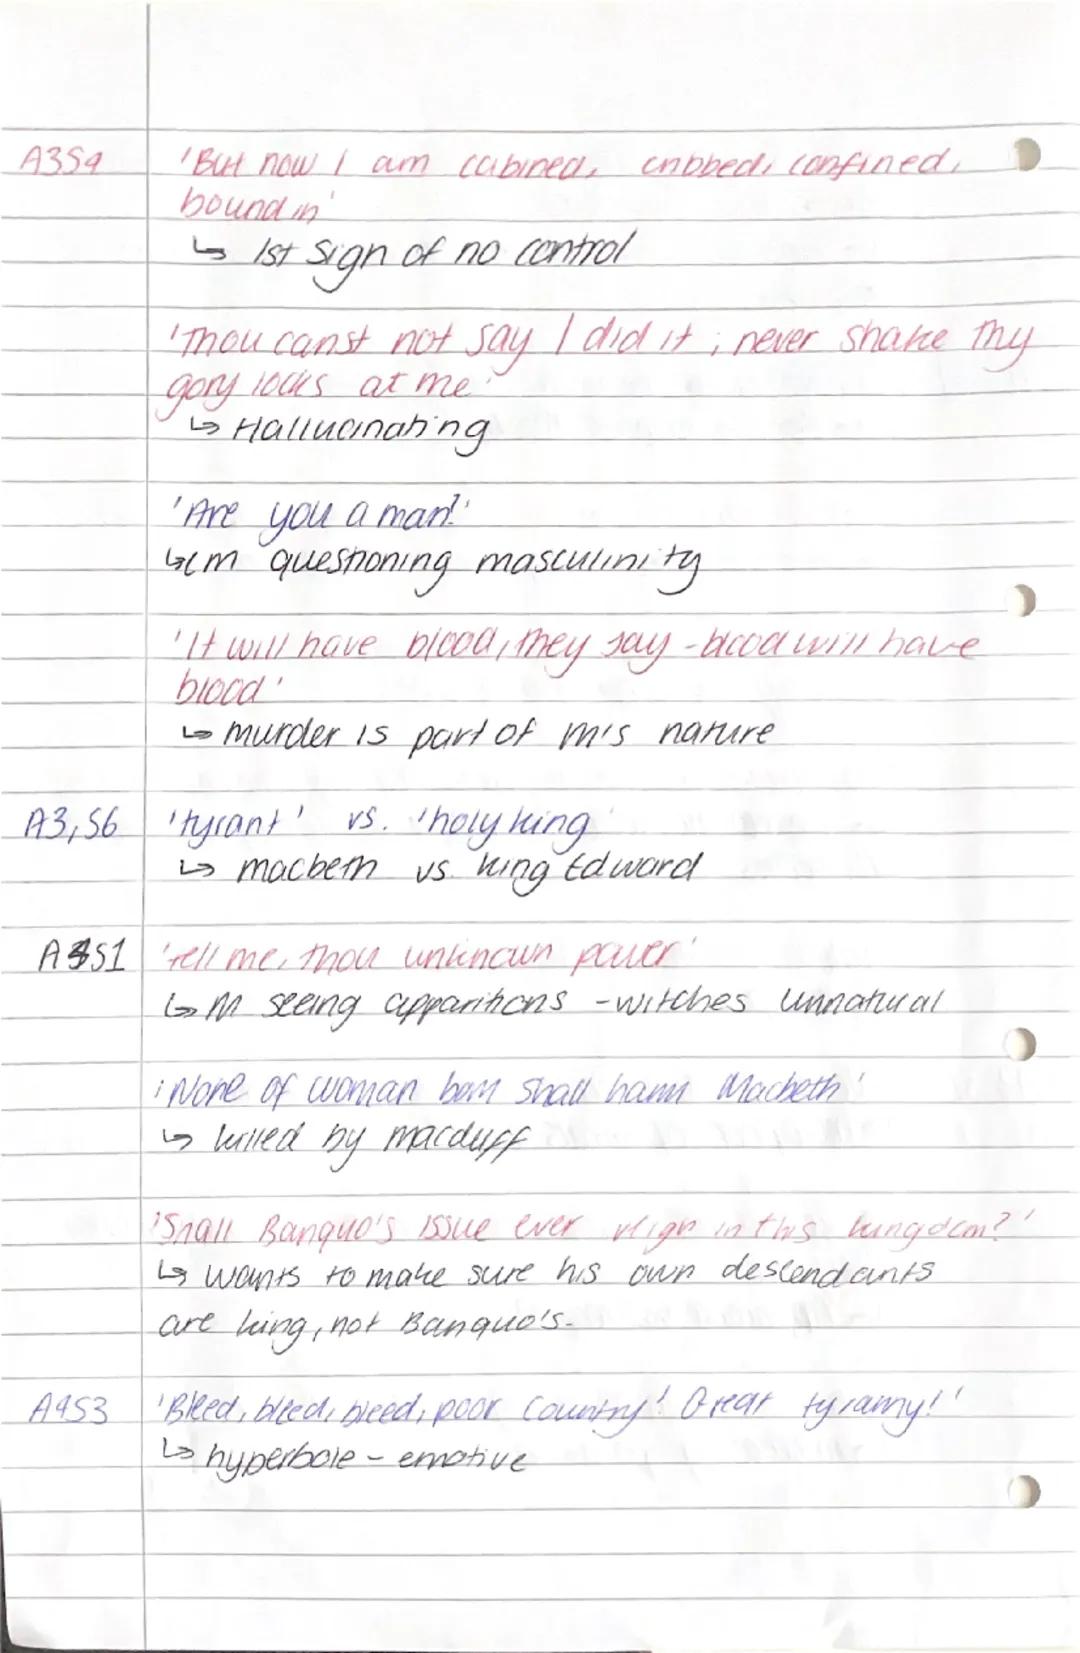 A3S4 'But now I am cabined, cribbed, confined,
bound in'
↳ 1st sign of no control
'Thou canst not say I did it; never shake thy
gory locks at me'
↳ Hallucinating
'Are you a man?'
↳ LM questioning masculinity
'It will have blood, they say - blood will have
blood'
↳ murder is part of M's nature
A3, S6 'tyrant' vs. 'holy king'
↳ macbeth vs. king Edward
A4S1 'Tell me, thou unknown power'
↳ M seeing apparitions - witches unnatural
'None of woman born shall harm Macbeth'
↳ killed by macduff
'Shall Banquo's issue ever reign in this kingdom?'
↳ wants to make sure his own descendants
are king, not Banquo's.
A4S3 'Bleed, bleed, bleed, poor country! Great tyranny!'
↳ hyperbole - emotive